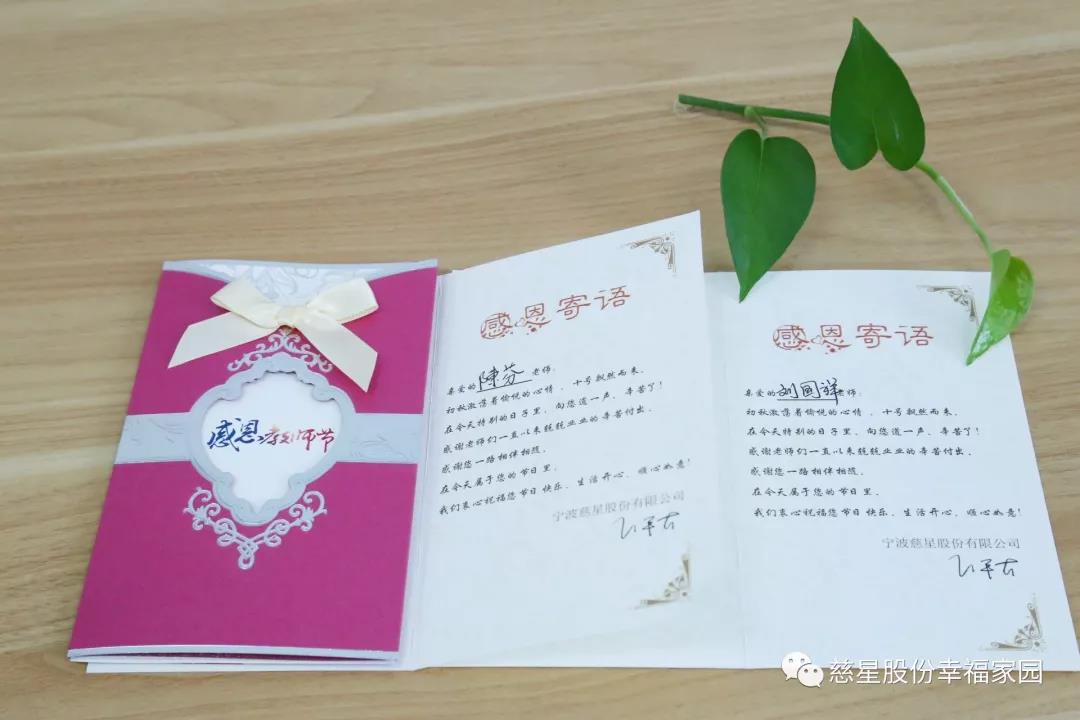 感恩教师节
感恩寄语
亲爱的陳芬老师：
初秋激荡着愉悦的心情，十号飘然而来。
在今天特别的日子里，向您道一声，辛苦了！
感谢老师们一直以来兢兢业业的辛苦付出，
感谢您一路相伴相随。
在今天属于您的节日里，
我们衷心祝福您节日快乐、生活开心、顺心如意！
宁波慈星股份有限公司
感恩寄语
亲爱的刘国祥老师：
初秋激荡着愉悦的心情，十号飘然而来。
在今天特别的日子里，向您道一声，辛苦了！
感谢老师们一直以来兢兢业业的辛苦付出，
感谢您一路相伴相随。
在今天属于您的节日里，
我们衷心祝福您节日快乐、生活开心、顺心如意！
宁波慈星股份有限公司
慈星股份幸福家园